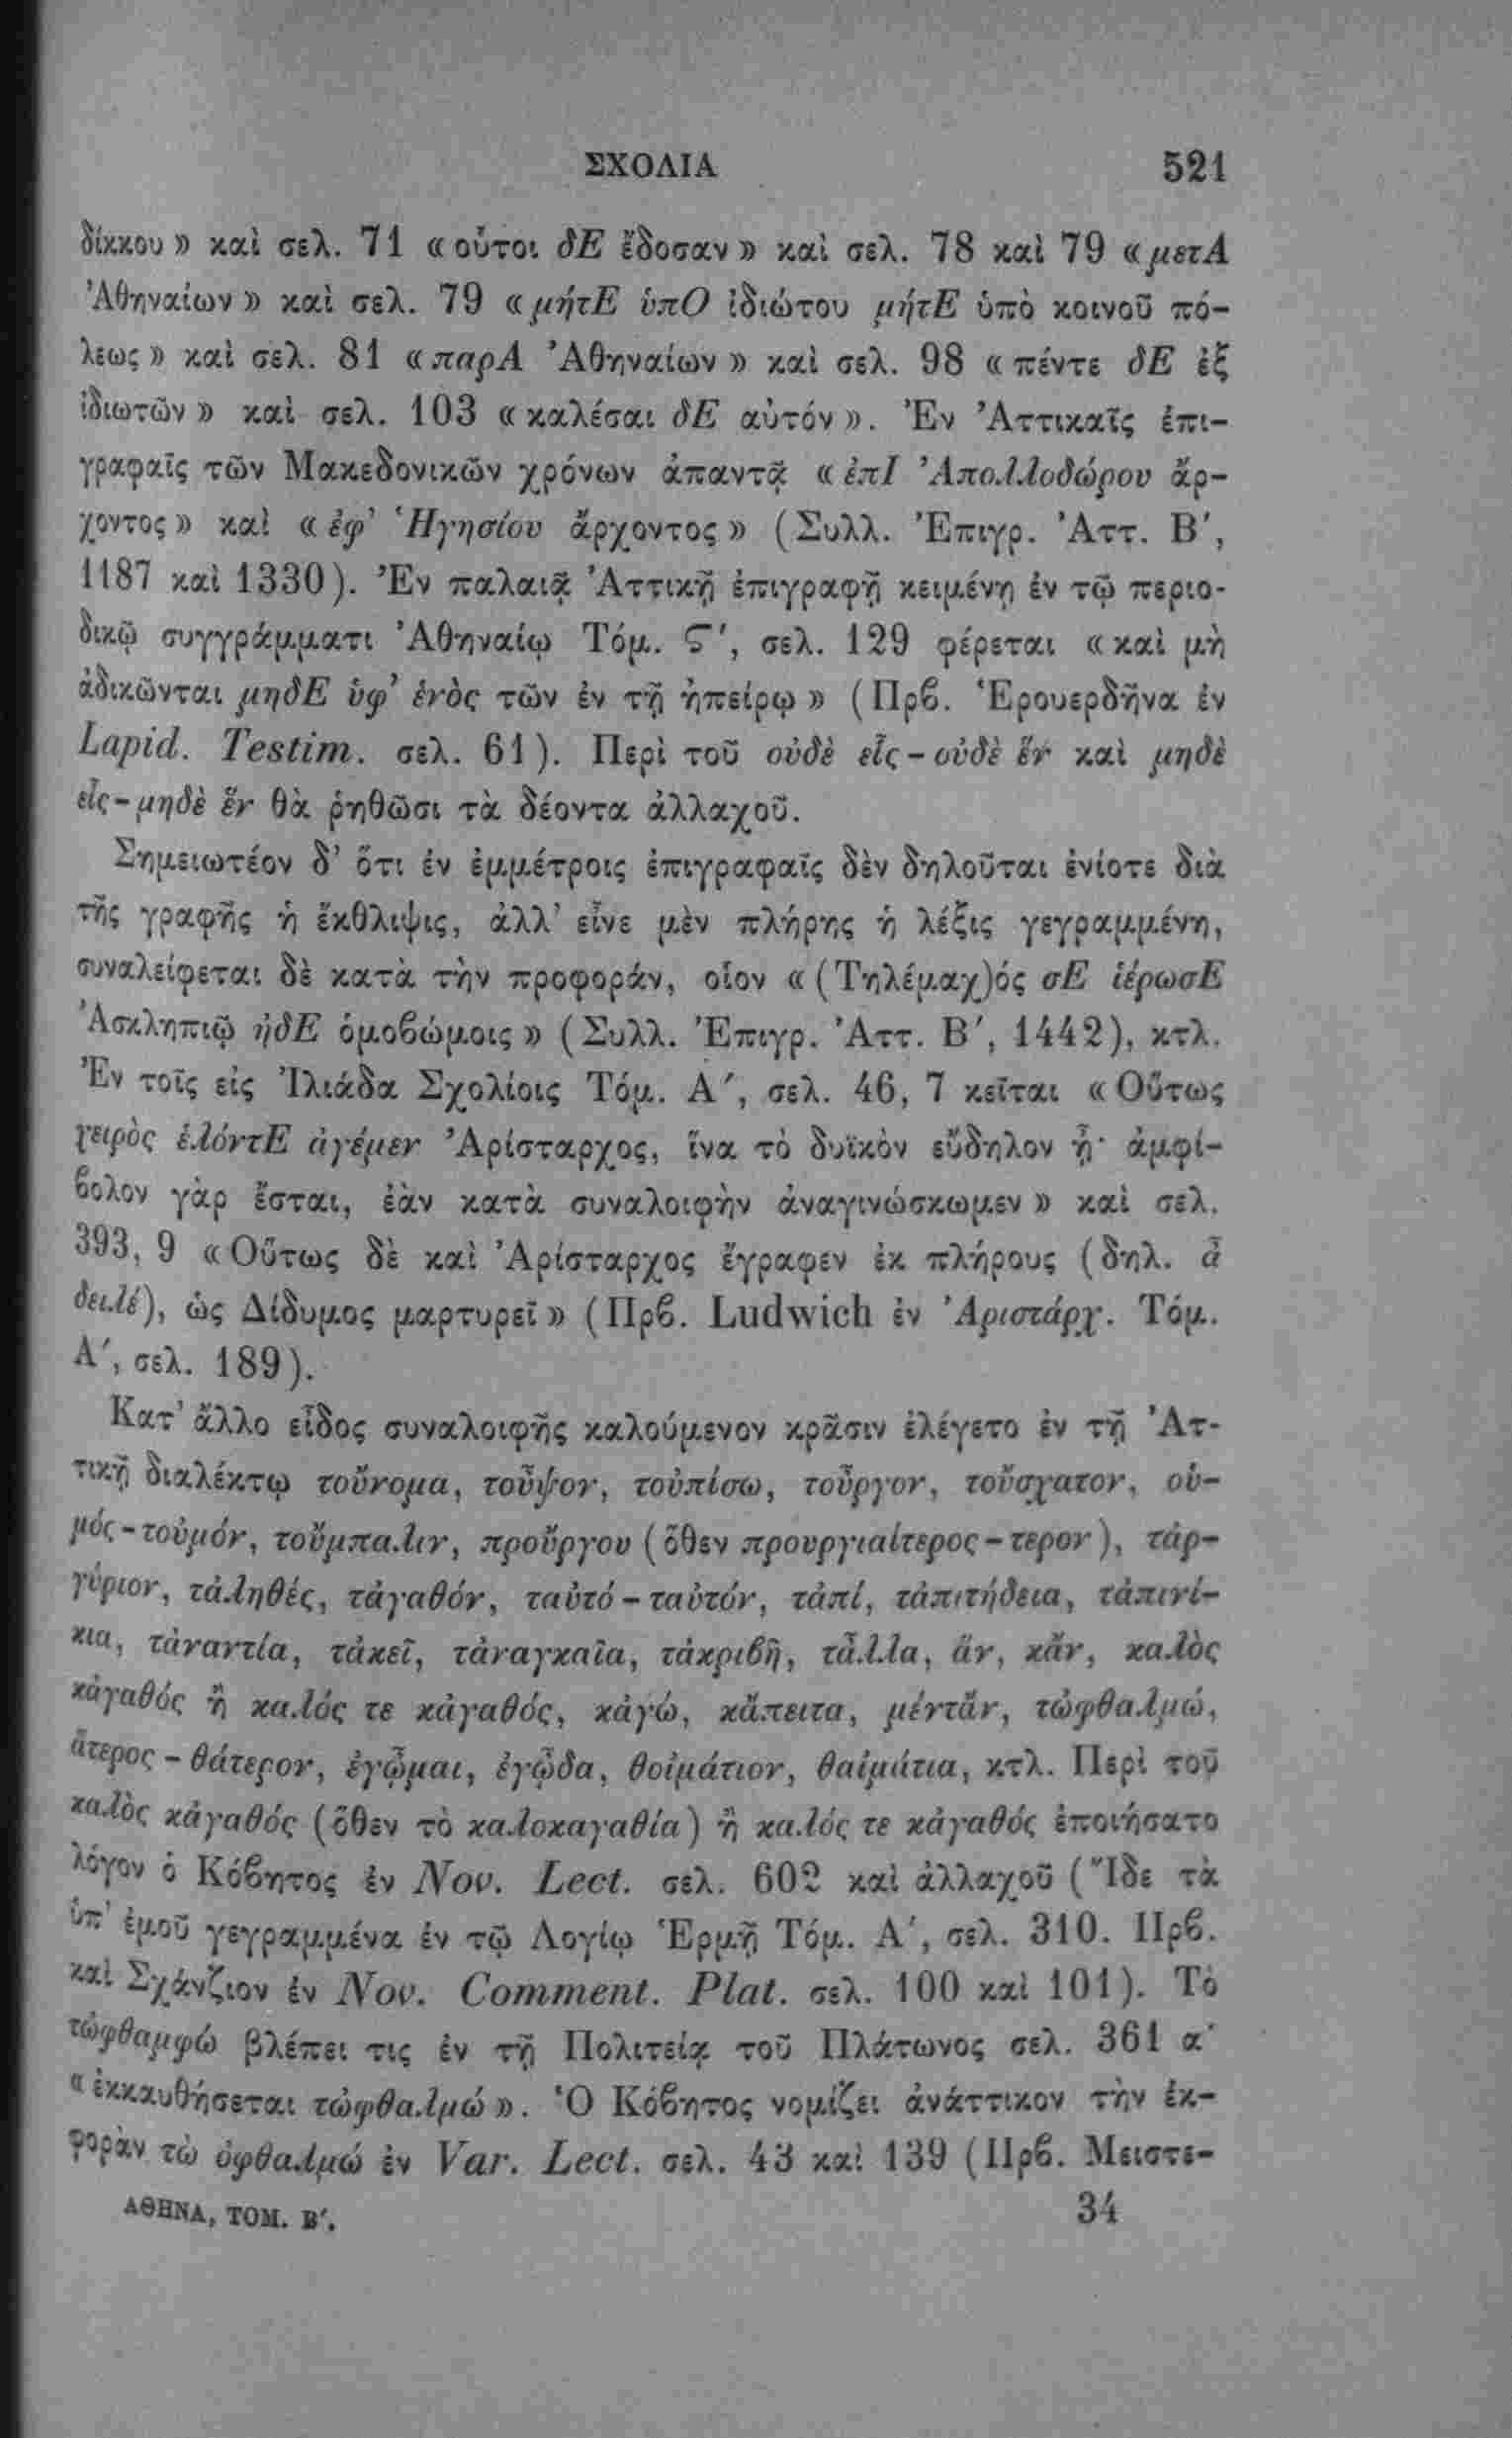 ΣΧΟΛΙΑ 521
δίκκου» καὶ σελ. 71 «οὗτοι δΕ ἔδοσαν» καὶ σελ. 78 καὶ 79 «μετΑ
Ἀθηναίων» καὶ σελ. 79 «μήτΕ ὑπΟ ἰδιώτου μήτΕ ὑπὸ κοινοῦ πό-
λεως» καὶ σελ. 81 «παρΑ Ἀθηναίων» καὶ σελ. 98 «πέντε δΕ ἐξ
ἰδιωτῶν» καὶ σελ. 103 «καλέσαι δΕ αὐτόν». Ἐν Ἀττικαῖς ἐπι-
γραφαῖς τῶν Μακεδονικῶν χρόνων ἀπαντᾷ «ἐπΙ Ἀπολλοδώρου ἄρ-
χοντος» καὶ «ἐφ’ Ἡγησίου ἄρχοντος» (Συλλ. Ἐπιγρ. Ἀττ. Β′,
1187 καὶ 1330). Ἐν παλαιᾷ Ἀττικῇ ἐπιγραφῇ κειμένῃ ἐν τῷ περιο-
δικῷ συγγράμματι Ἀθηναίῳ Τόμ. Ϛ′, σελ. 129 φέρεται «καὶ μὴ
ἀδικῶνται μηδΕ ὑφ’ ἑνὸς τῶν ἐν τῇ ἠπείρῳ» (Πρβ. Ἑρουερδῆνα ἐν
Lapid. Testim. σελ. 61). Περὶ τοῦ οὐδὲ εἷς – οὐδὲ ἓν καὶ μηδὲ
εἷς – μηδὲ ἓν θὰ ῥηθῶσι τὰ δέοντα ἀλλαχοῦ.
Σημειωτέον δ’ ὅτι ἐν ἐμμέτροις ἐπιγραφαῖς δὲν δηλοῦται ἐνίοτε διὰ
τῆς γραφῆς ἡ ἔκθλιψις, ἀλλ’ εἶνε μὲν πλήρης ἡ λέξις γεγραμμένη,
συναλείφεται δὲ κατὰ τὴν προφοράν, οἷον «(Τηλέμαχ)ός σΕ ἱέρωσΕ
Ἀσκληπιῷ ἠδΕ ὁμοβώμοις» (Συλλ. Ἐπιγρ. Ἀττ. Β′, 1442), κτλ.
Ἐν τοῖς εἰς Ἰλιάδα Σχολίοις Τόμ. Α′, σελ. 46, 7 κεῖται «Οὕτως
χειρὸς ἑλόντΕ ἀγέμεν Ἀρίσταρχος, ἵνα τὸ δυϊκὸν εὔδηλον ᾖ· ἀμφί-
βολον γὰρ ἔσται, ἐὰν κατὰ συναλοιφὴν ἀναγινώσκωμεν» καὶ σελ.
393, 9 «Οὕτως δὲ καὶ Ἀρίσταρχος ἔγραφεν ἐκ πλήρους (δηλ. ἆ
δειλέ), ὡς Δίδυμος μαρτυρεῖ» (Πρβ. Ludwich ἐν Ἀριστάρχ. Τόμ.
Α′, σελ. 189).
Κατ’ ἄλλο εἶδος συναλοιφῆς καλούμενον κρᾶσιν ἐλέγετο ἐν τῇ Ἀτ-
τικῇ διαλέκτῳ τοὔνομα, τοὖψον, τοὐπίσω, τοὖργον, τοὔσχατον, οὑ-
μός – τοὐμόν, τοὔμπαλιν, προὔργου (ὅθεν προυργιαίτερος – τερον), τἀρ-
γύριον, τἀληθές, τἀγαθόν, ταὐτό – ταὐτόν, τἀπί, τἀπιτήδεια, τἀπινί-
κια, τἀναντία, τἀκεῖ, τἀναγκαῖα, τἀκριβῆ, τἆλλα, ἅν, κἄν, καλὸς
κἀγαθός ἢ καλός τε κἀγαθός, κἀγώ, κἄπειτα, μέντἄν, τὠφθαλμώ,
ἅτερος – θάτερον, ἐγᾦμαι, ἐγᾦδα, θοἰμάτιον, θαἰμάτια, κτλ. Περὶ τοῦ
καλὸς κἀγαθός (ὅθεν τὸ καλοκαγαθία) ἢ καλός τε κἀγαθός ἐποιήσατο
λόγον ὁ Κόβητος ἐν Nov. Lect. σελ. 602 καὶ ἀλλαχοῦ (Ἴδε τὰ
ὑπ’ ἐμοῦ γεγραμμένα ἐν τῷ Λογίῳ Ἑρμῇ Τόμ. Α′, σελ. 310. Πρβ.
καὶ Σχάνζιον ἐν Nov. Comment. Plat. σελ. 100 καὶ 101). Τὸ
τὠφθαμφώ βλέπει τις ἐν τῇ Πολιτείᾳ τοῦ Πλάτωνος σελ. 361 α΄
«ἐκκαυθήσεται τὠφθαλμώ». Ὁ Κόβητος νομίζει ἀνάττικον τὴν ἐκ-
φορὰν τὼ ὀφθαλμώ ἐν Var. Lect. σελ. 43 καὶ 139 (Πρβ. Μειστε-
ΑΘΗΝΑ, ΤΟΜ. Β′. 34